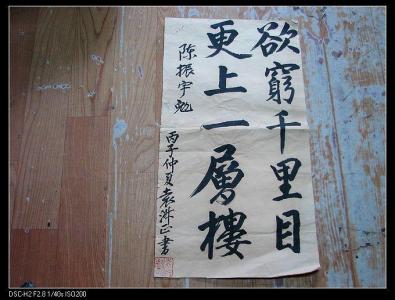 欲窮千里目
更上一層樓
陈振宇勉
丙子仲夏袁洪正書
DSC-H2 F2.8 1/40s ISO200